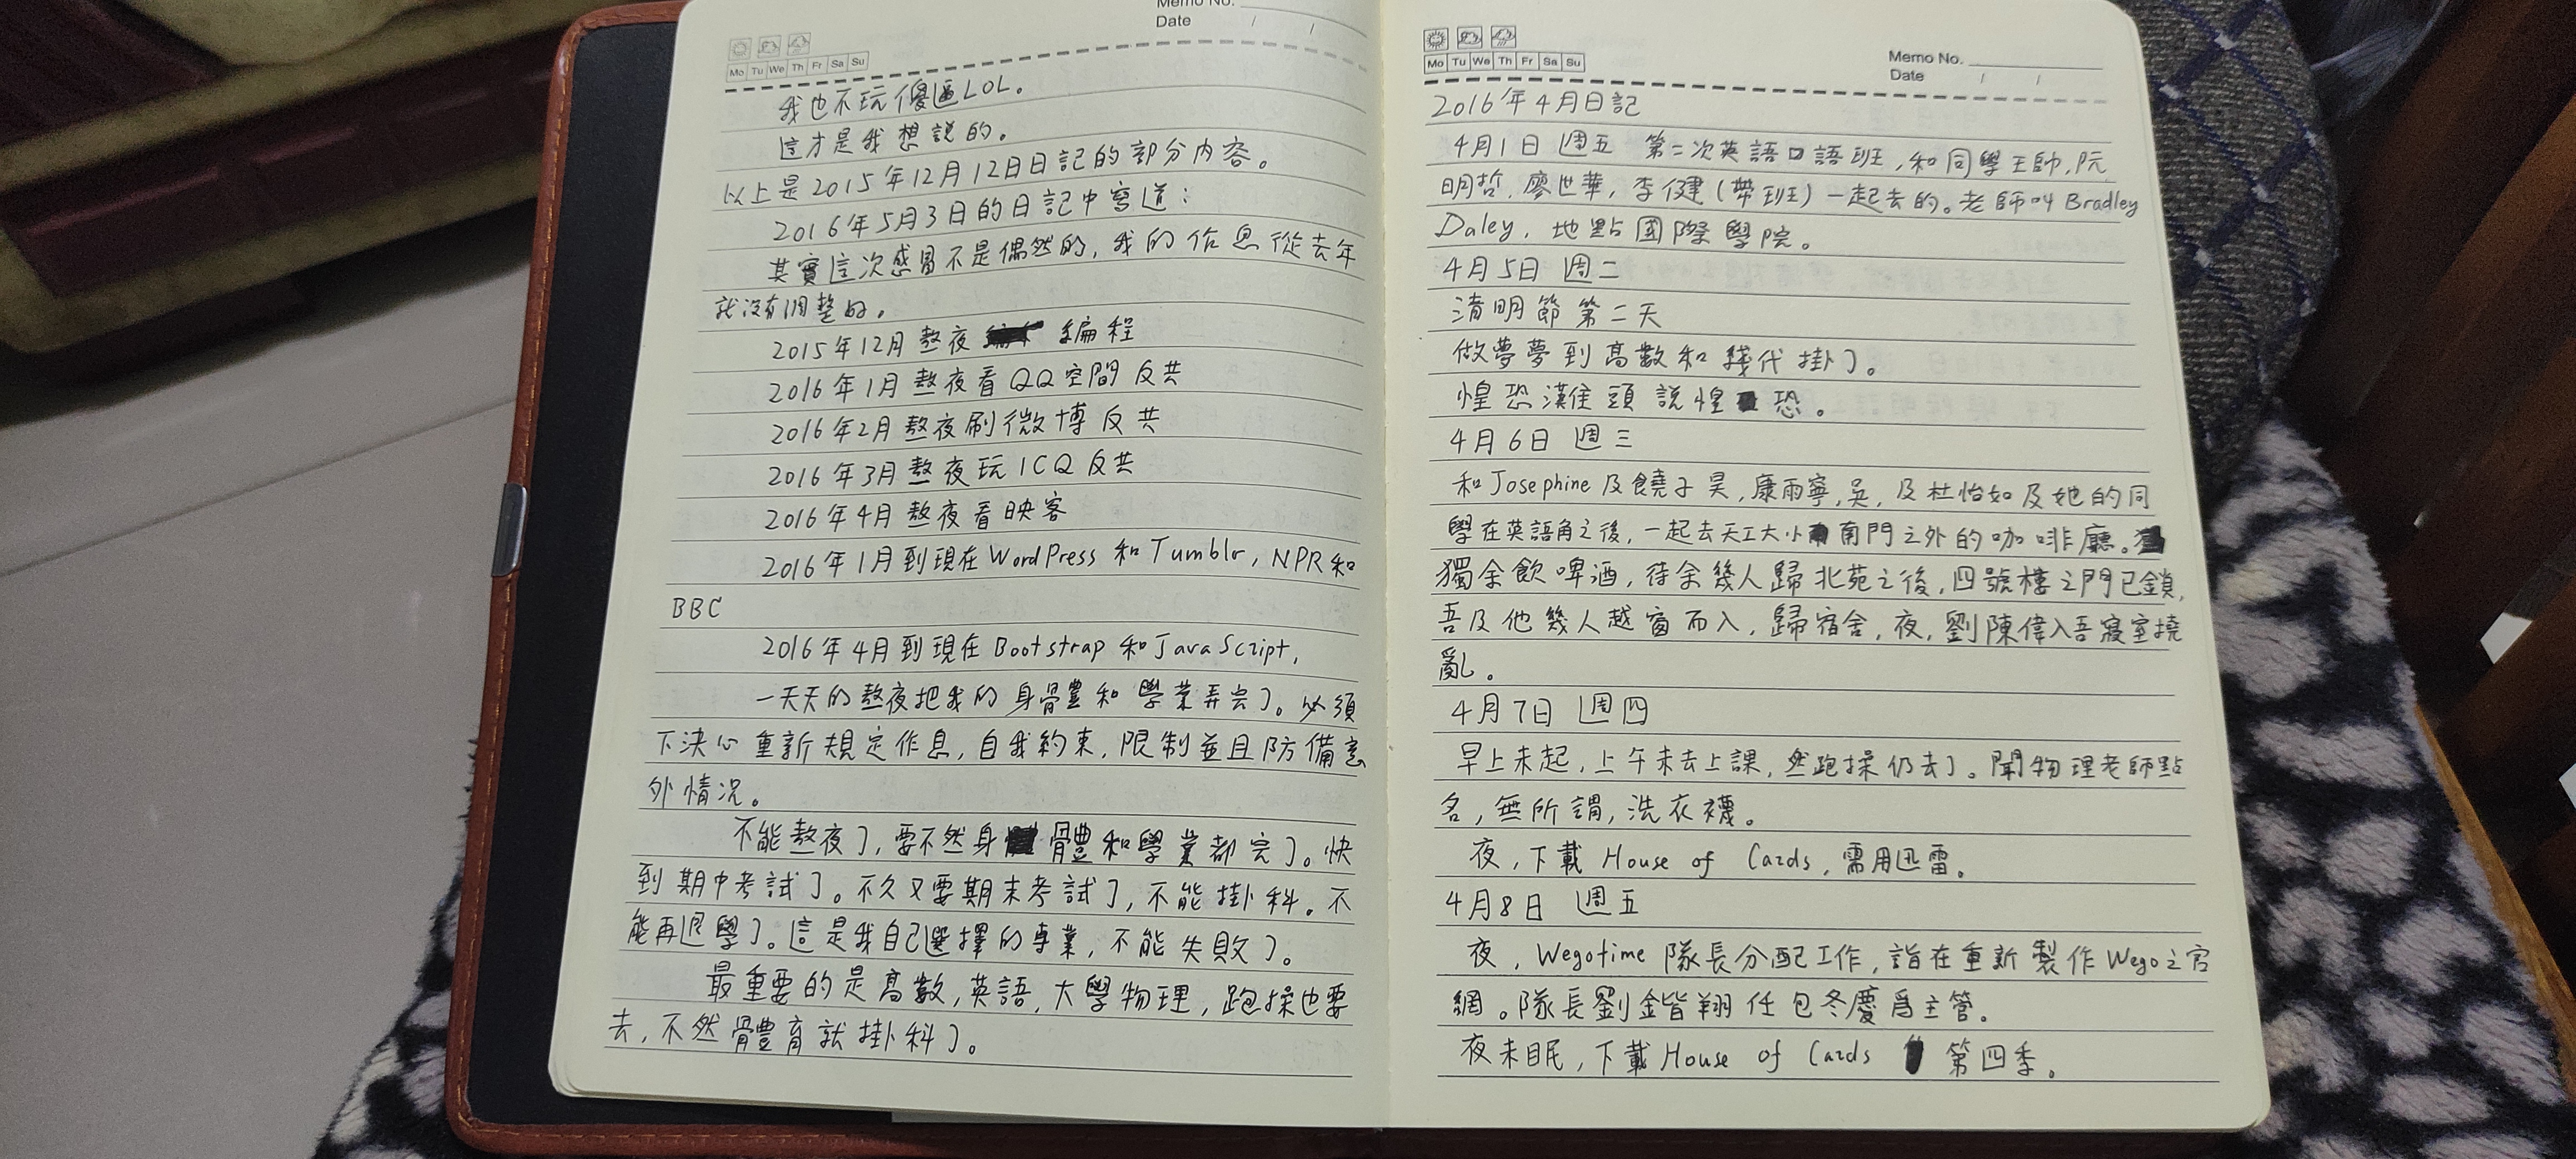 Memo No.
Date / /
Mo Tu We Th Fr Sa Su
我也不玩傻逼LOL。
這才是我想說的。
以上是2015年12月12日日記的部分内容。
2016年5月3日的日記中寫道：
其實這次感冒不是偶然的，我的作息從去年
就沒有調整好。
2015年12月熬夜 編程
2016年1月熬夜看QQ空間反共
2016年2月熬夜刷微博反共
2016年3月熬夜玩ICQ反共
2016年4月熬夜看映客
2016年1月到現在WordPress和Tumblr，NPR和
BBC
2016年4月到現在Bootstrap和JavaScript，
一天天的熬夜把我的身體和學業弄完了。必須
下決心重新規定作息，自我約束，限制並且防備意
外情況。
不能熬夜了，要不然身體和學業都完了。快
到期中考試了。不久又要期末考試了，不能掛科。不
能再退學了。這是我自己選擇的專業，不能失敗了。
最重要的是高數，英語，大學物理，跑操也要
去，不然體育就掛科了。
Mo Tu We Th Fr Sa Su
Memo No.
Date / /
2016年4月日記
4月1日 週五 第二次英語口語班，和同學王帥，阮
明哲，廖世華，李健（帶班）一起去的。老師叫Bradley
Daley，地點國際學院。
4月5日 週二
清明節第二天
做夢夢到高數和綫代掛了。
惶恐灘頭說惶恐。
4月6日 週三
和Josephine及饒子昊，康雨寧，吳，及杜怡如及她的同
學在英語角之後，一起去天工大小南門之外的咖啡廳。
獨余飲啤酒，待余幾人歸北苑之後，四號樓之門已鎖，
吾及他幾人越窗而入，歸宿舍，夜，劉陳偉入吾寢室撓
亂。
4月7日 週四
早上未起，上午未去上課，然跑操仍去了。聞物理老師點
名，無所謂，洗衣襪。
夜，下載House of Cards，需用迅雷。
4月8日 週五
夜，Wegotime隊長分配工作，皆在重新製作Wego之官
網。隊長劉鍇翔任包冬慶爲主管。
夜未眠，下載House of Cards 第四季。